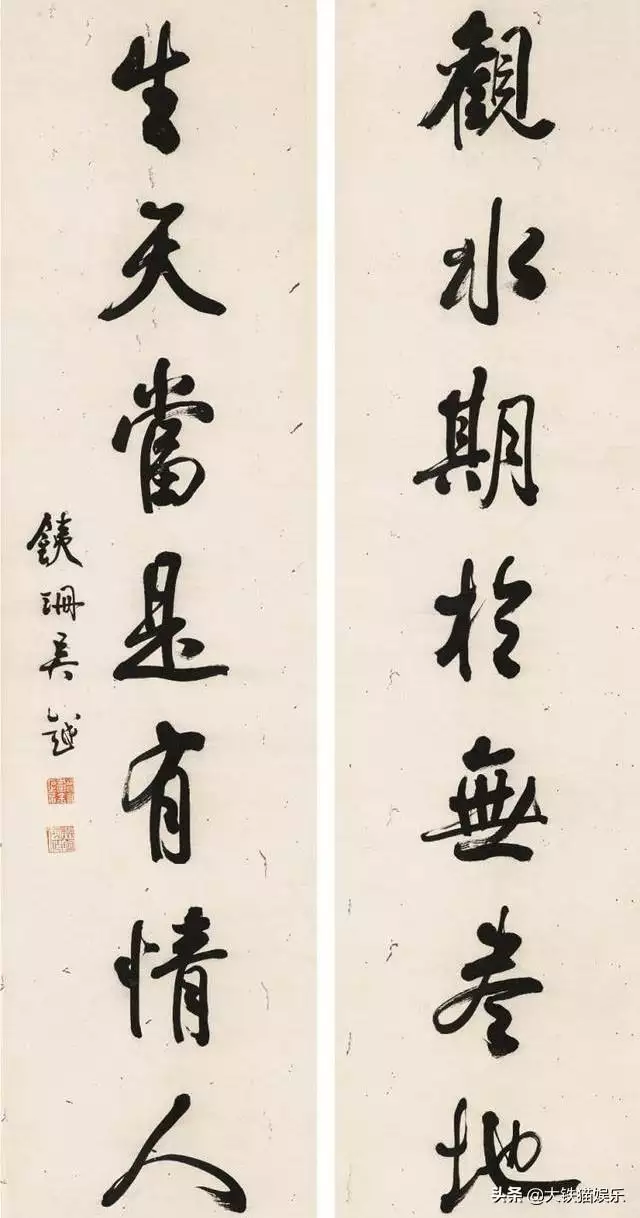 觀水期於無地
生天當是有情人
銕珊吳越
头条 @大铁猫娱乐